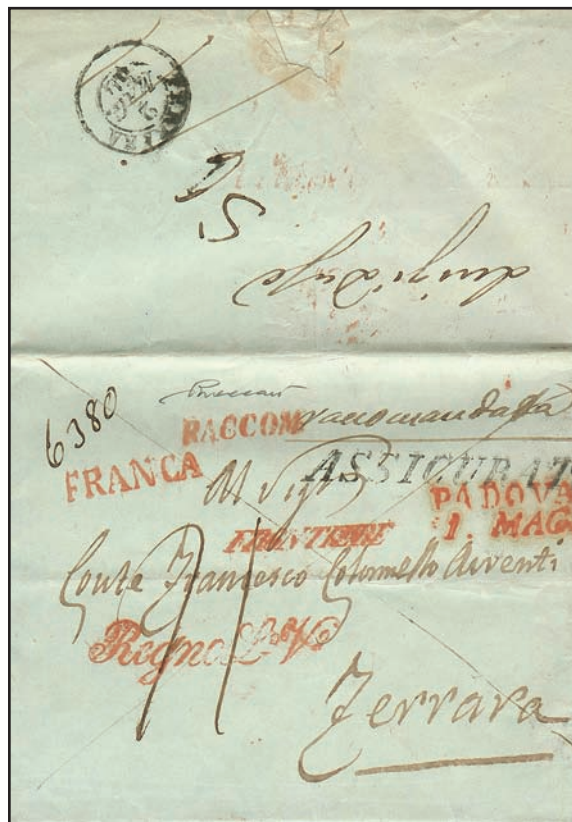 FERRARA
2
MAG
Luigi
6380
RACCOM raccomandata
FRANCA
ASSICURAT
Al Sigr
PADOVA
1. MAG
FRONTIERE
Conte Francesco Colonnello Avventi
Regno L. V.
Ferrara